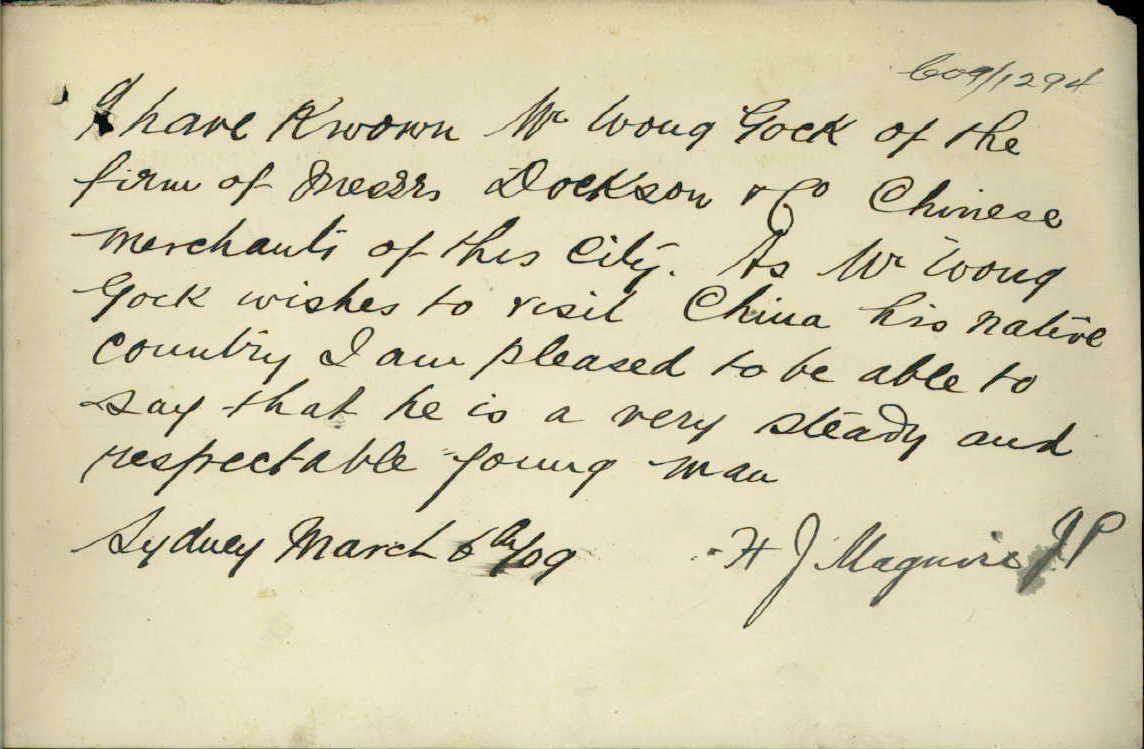 C09/1294
I have Known Mr Wong Gock of the
firm of Messrs Dockson & Co Chinese
merchants of this City. As Mr Wong
Gock wishes to visit China his native
country I am pleased to be able to
say that he is a very steady and
respectable young man
Sydney March 6th/09 H J Maguire JP